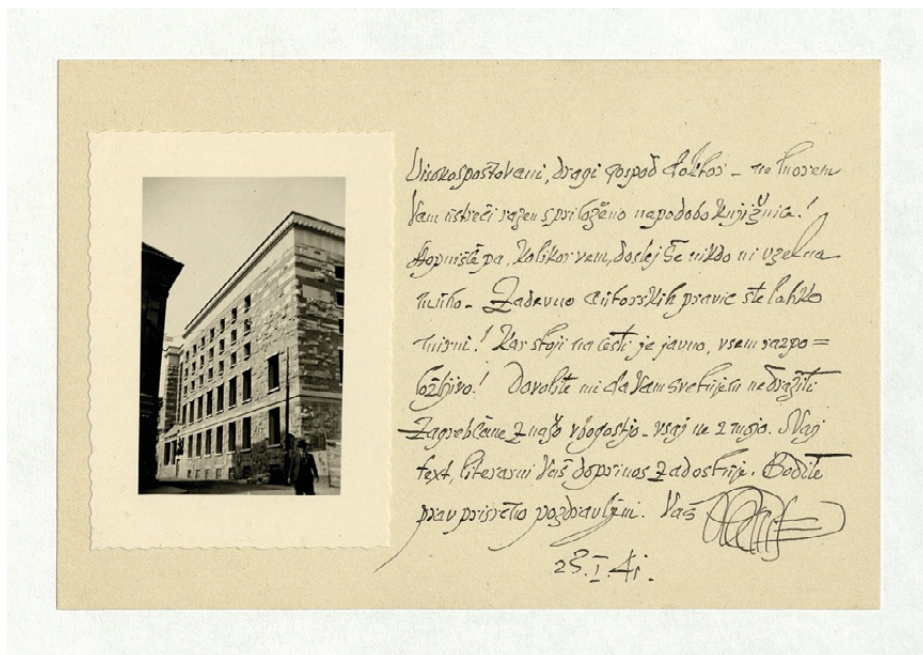 Visokospoštovani, dragi gospod doktor – ne morem
Vam ustreči razen s priloženo napodobo knjižnice!
pa, kolikor vem, doslej še nikdo ni vzel na
muho – Zadevno autorskih pravic ste lahko
mirni! Kar stoji na cesti je javno, vsem razpo=
ložljivo! Dovolite mi da Vam svetujem ne dražiti
Zagrebčane z našo vbogostjo – vsaj ne z mojo. Naj
text, literarni Vaš doprinos zadostuje. Bodite
prav prisrčno pozdravljeni. Vaš
23.I.41.